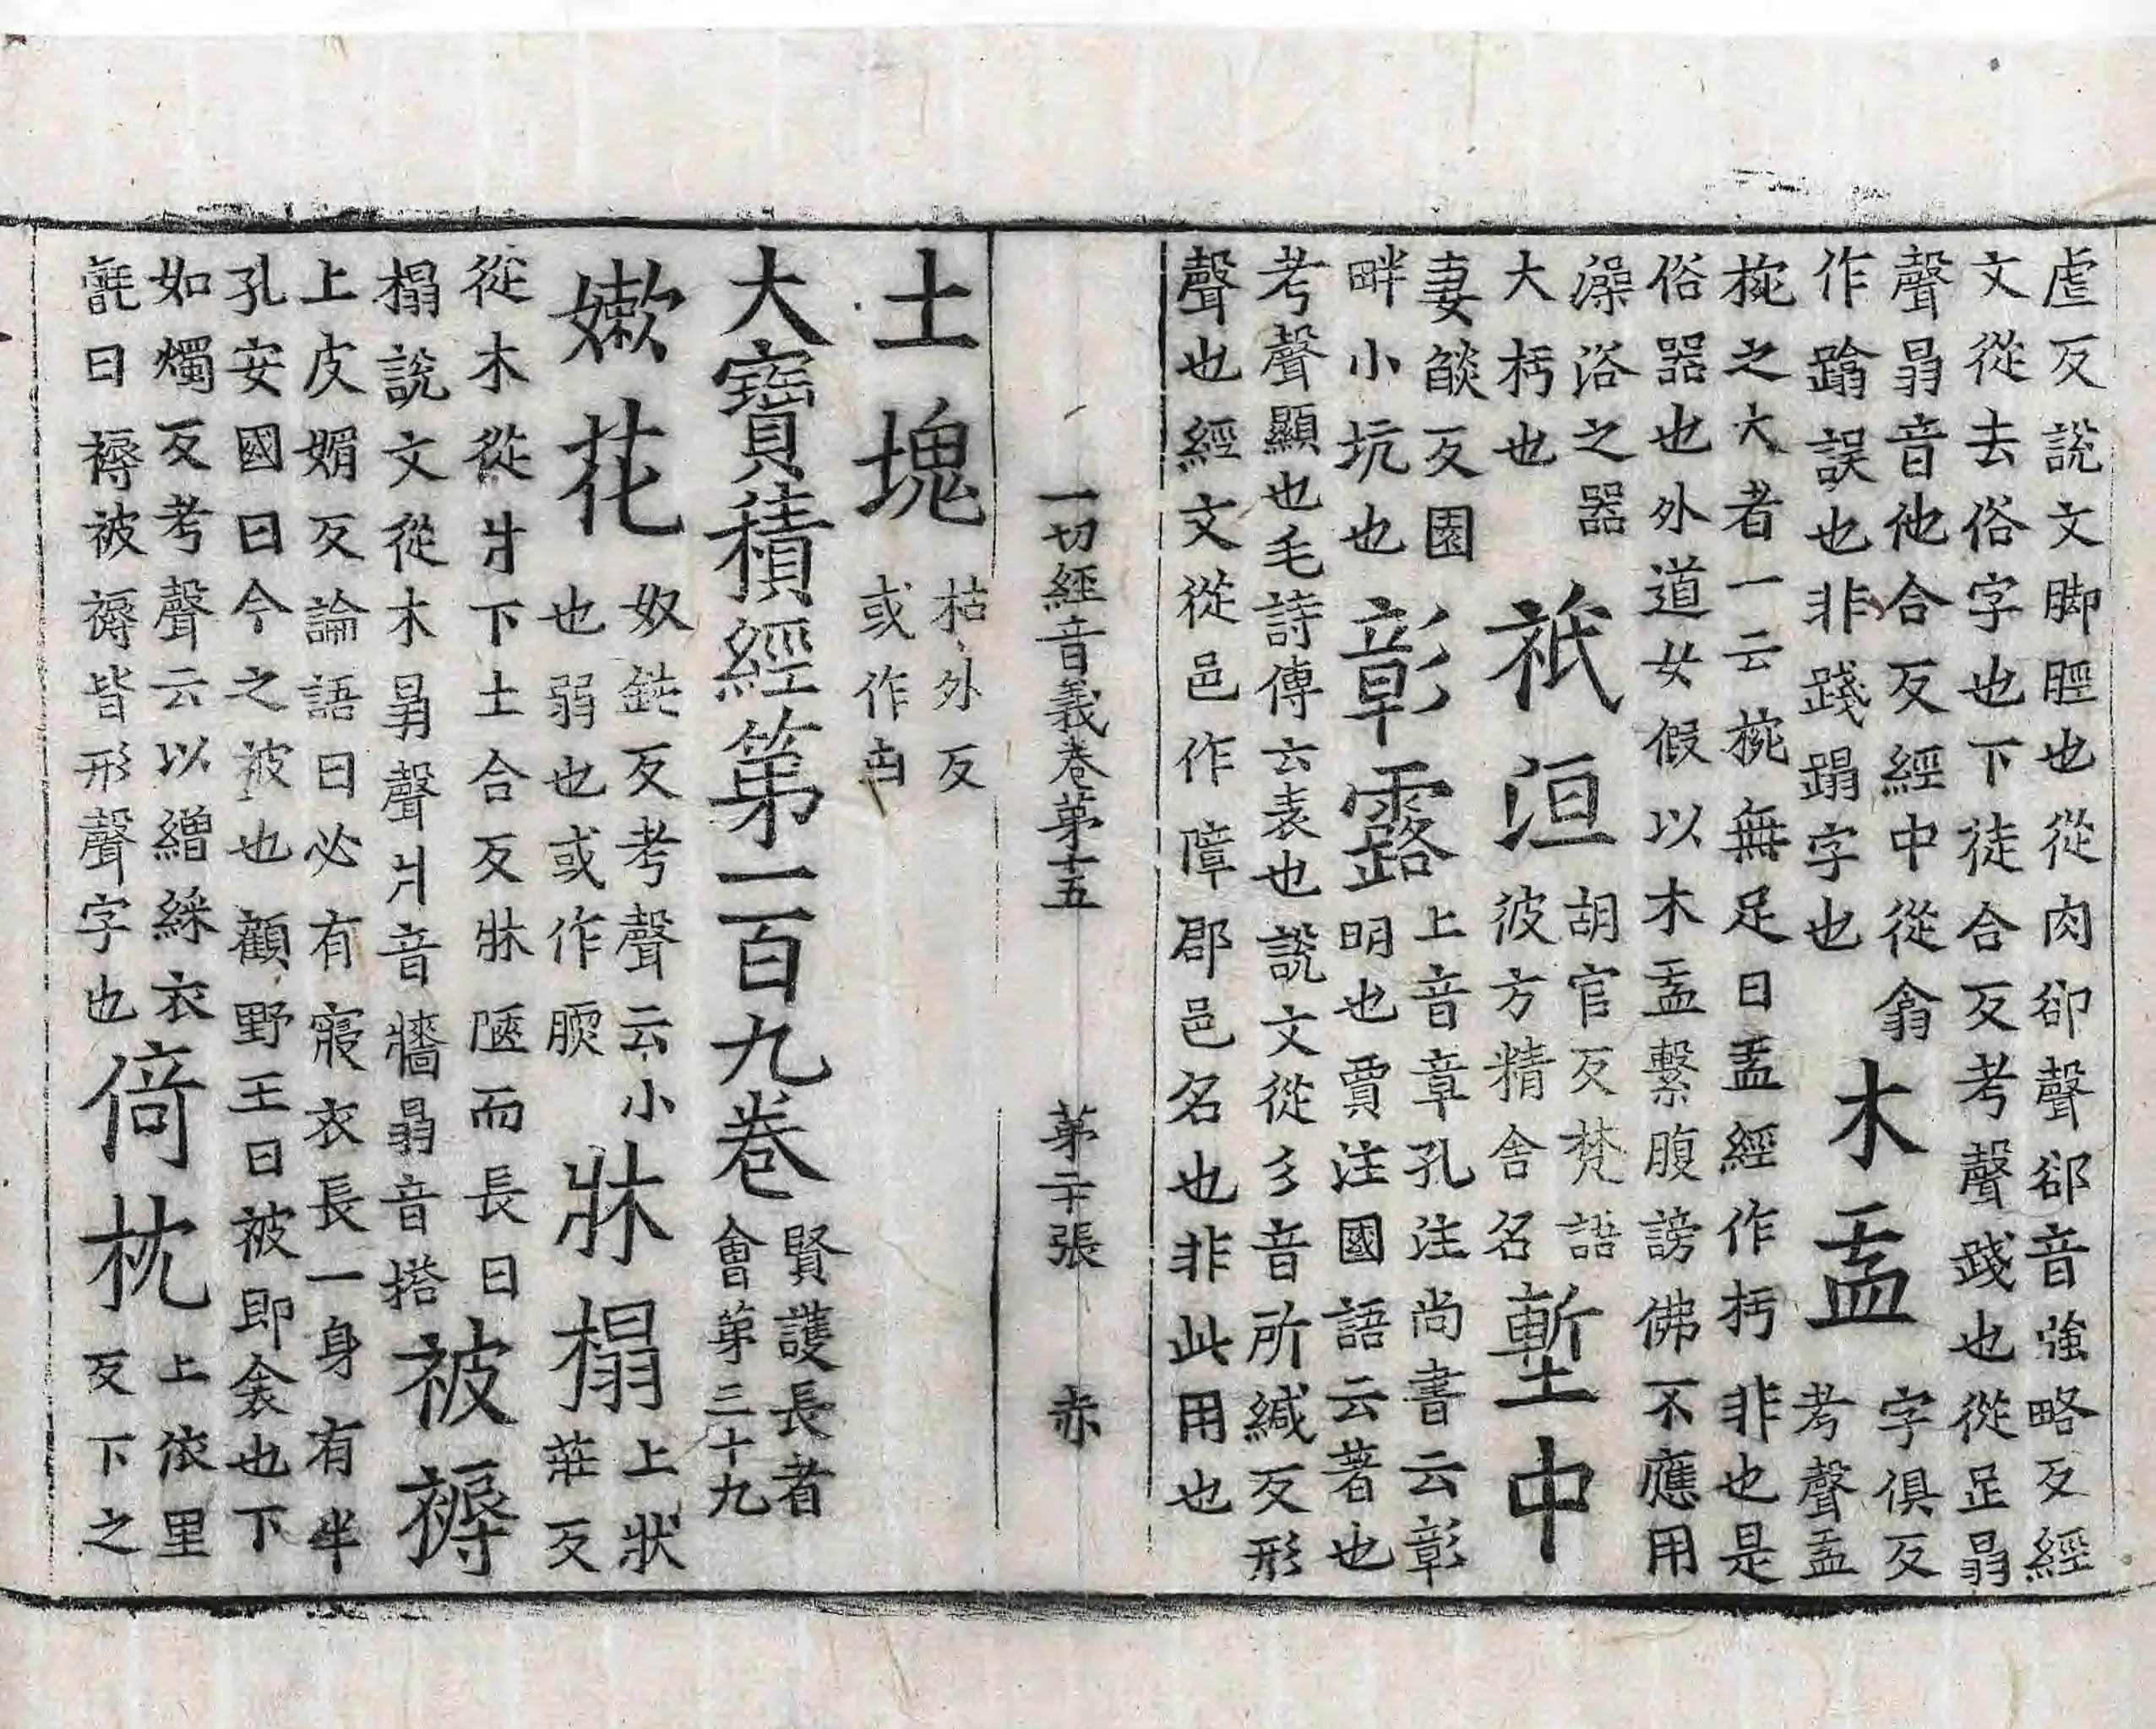 虐反說文脚脛也從肉卻聲卻音強略反經
文從去俗字也下徒合反考聲踐也從足𦐇
聲𦐇音他合反經中從翕
作蹹誤也非踐蹋字也
木盂
字俱反
考聲盂
椀之大者一云椀無足曰盂經作杇非也是
俗器也外道女假以木盂繫腹謗佛不應用
澡浴之器
大杇也
祇洹
胡官反梵語
彼方精舍名
塹中
妻燄反園
畔小坑也
彰露
上音章孔注尚書云彰
明也賈注國語云著也
考聲顯也毛詩傳云表也說文從彡音所緘反形
聲也經文從邑作障郡邑名也非此用也
一切經音義卷第十五 第二十張 赤
土塊
枯外反
或作凷
大寶積經第一百九卷
賢護長者
會第三十九
嫩花
奴鈍反考聲云小
也弱也或作腝
牀榻
上狀
莊反
從木從爿下土合反牀陿而長曰
榻說文從木𦐇聲爿音牆𦐇音搭
被褥
上皮媚反論語曰必有寢衣長一身有半
孔安國曰今之被也顧野王曰被即衾也下
如燭反考聲云以繒綵衣
氈曰褥被褥皆形聲字也
倚枕
上依里
反下之